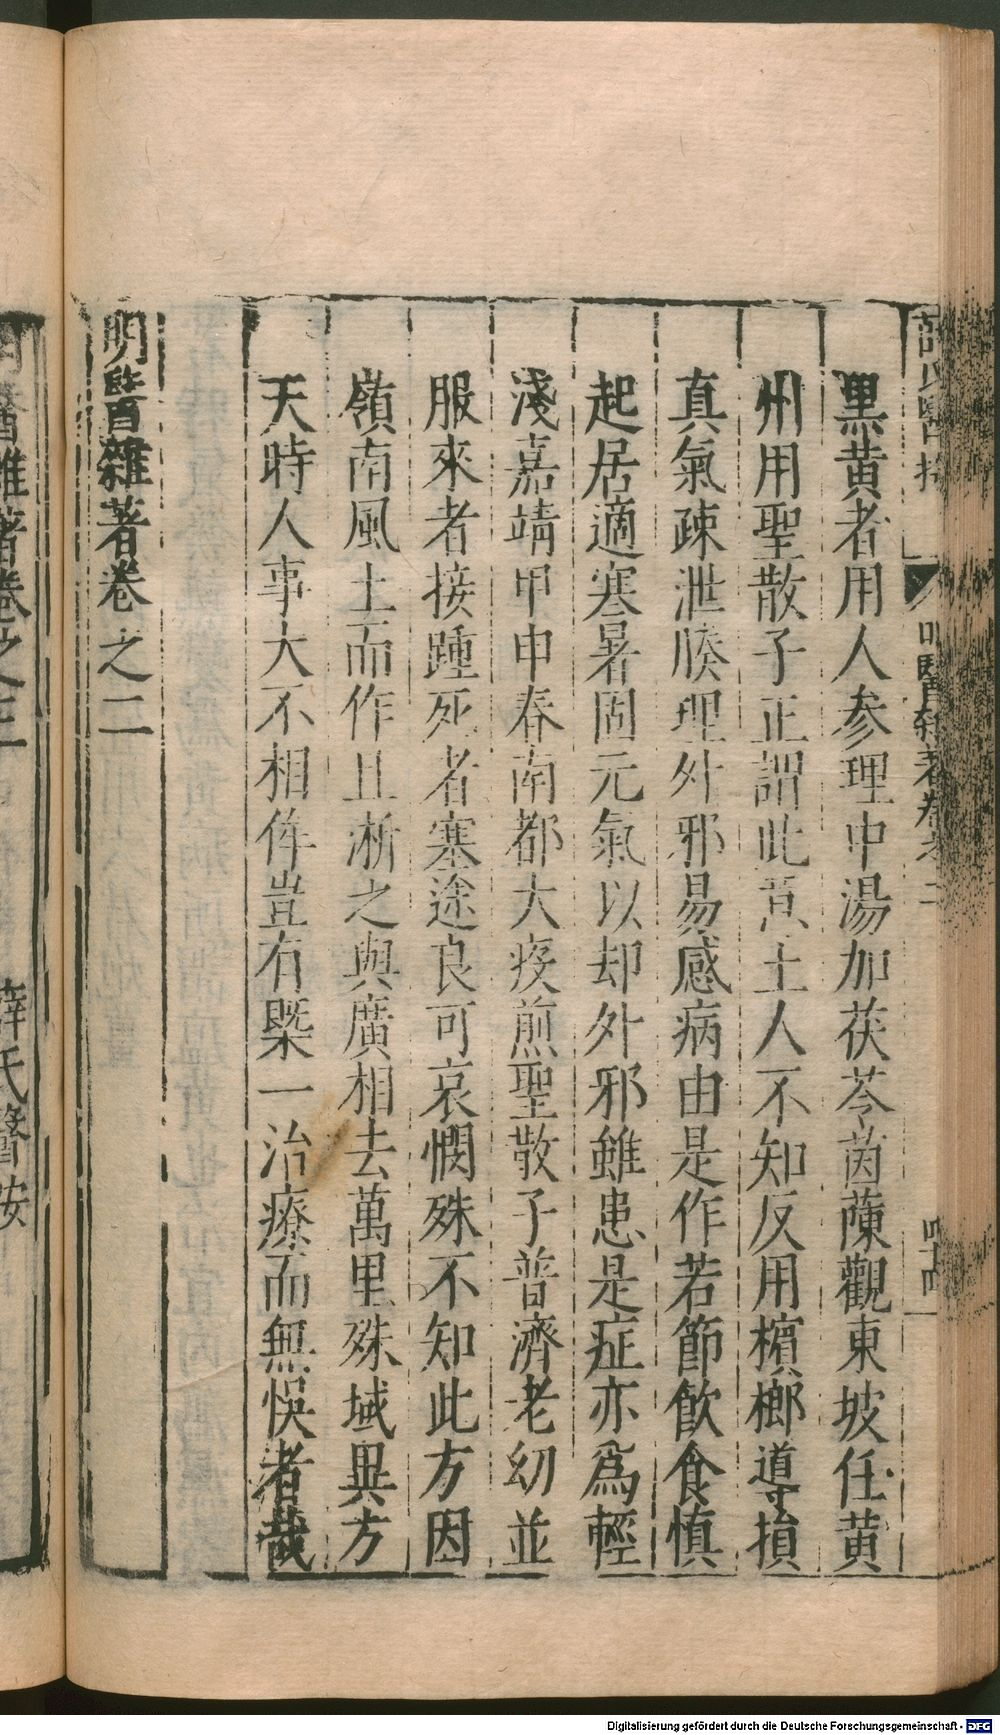 明醫雜著卷之二
黑黄者用人参理中湯加茯苓茵蔯觀東坡任黄
州用聖散子正謂此意土人不知反用檳榔導損
真氣疎泄腠理外邪易感病由是作若節飲食慎
起居適寒暑固元氣以却外邪雖患是症亦爲輕
淺嘉靖甲申春南都大疫煎聖散子普濟老幼並
服來者接踵死者塞途良可哀憫殊不知此方因
嶺南風土而作且淅之與廣相去萬里殊域異方
天時人事大不相侔豈有槩一治療而無悞者哉
明醫雜著卷之二
醫雜著卷之三
薛氏醫按
Digitalisierung gefördert durch die Deutsche Forschungsgemeinschaft - DFG